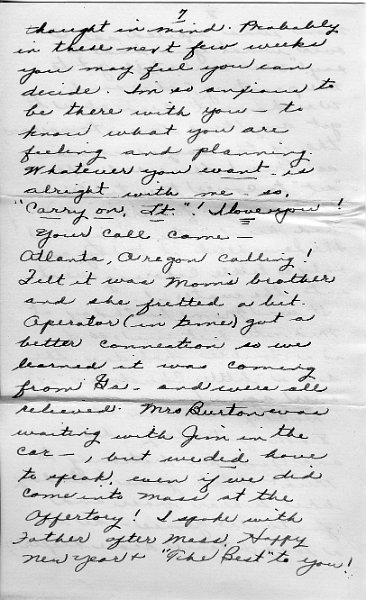 7
thought in mind. Probably
in these next few weeks
you may feel you can
decide. I'm so anxious to
be there with you - to
know what you are
feeling and planning.
Whatever you want - is
alright with me - so,
"Carry on, Lt."! I love you!
Your call came -
Atlanta, Oregon calling!
Felt it was Mom's brother
and she fretted a bit.
Operator (in time) got a
better connection so we
learned it was coming
from Ga - and were all
relieved. Mrs Burton was
waiting with Jim in the
car -, but we did have
to speak, even if we did
come into Mass at the
Offertory! I spoke with
Father after Mass. Happy
New Year & "The Best" to you!